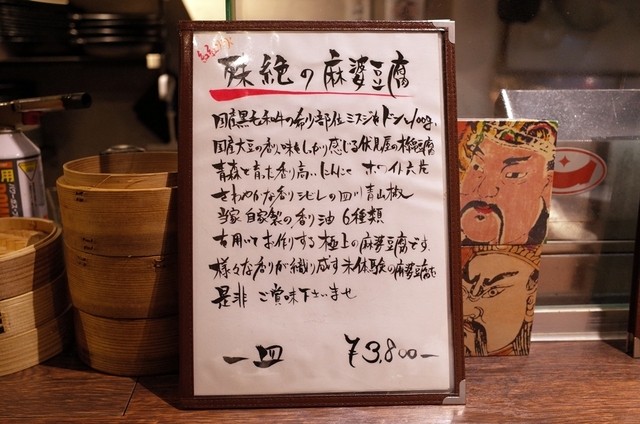 殊絶の麻婆豆腐
国産黒毛和牛の希少部位ミスジをドンと100g、
国産大豆の香りと味をしっかり感じる伏見屋の極豆腐
青森で育った香り高いにんにく ホワイト六片
さわやかな香りとシビレの四川青山椒
当家 自家製の香り油 6種類
を用いてお作りする極上の麻婆豆腐です。
様々な香りが織り成す未体験の麻婆豆腐を
是非 ご賞味下さいませ
一皿 ¥3,800-
用